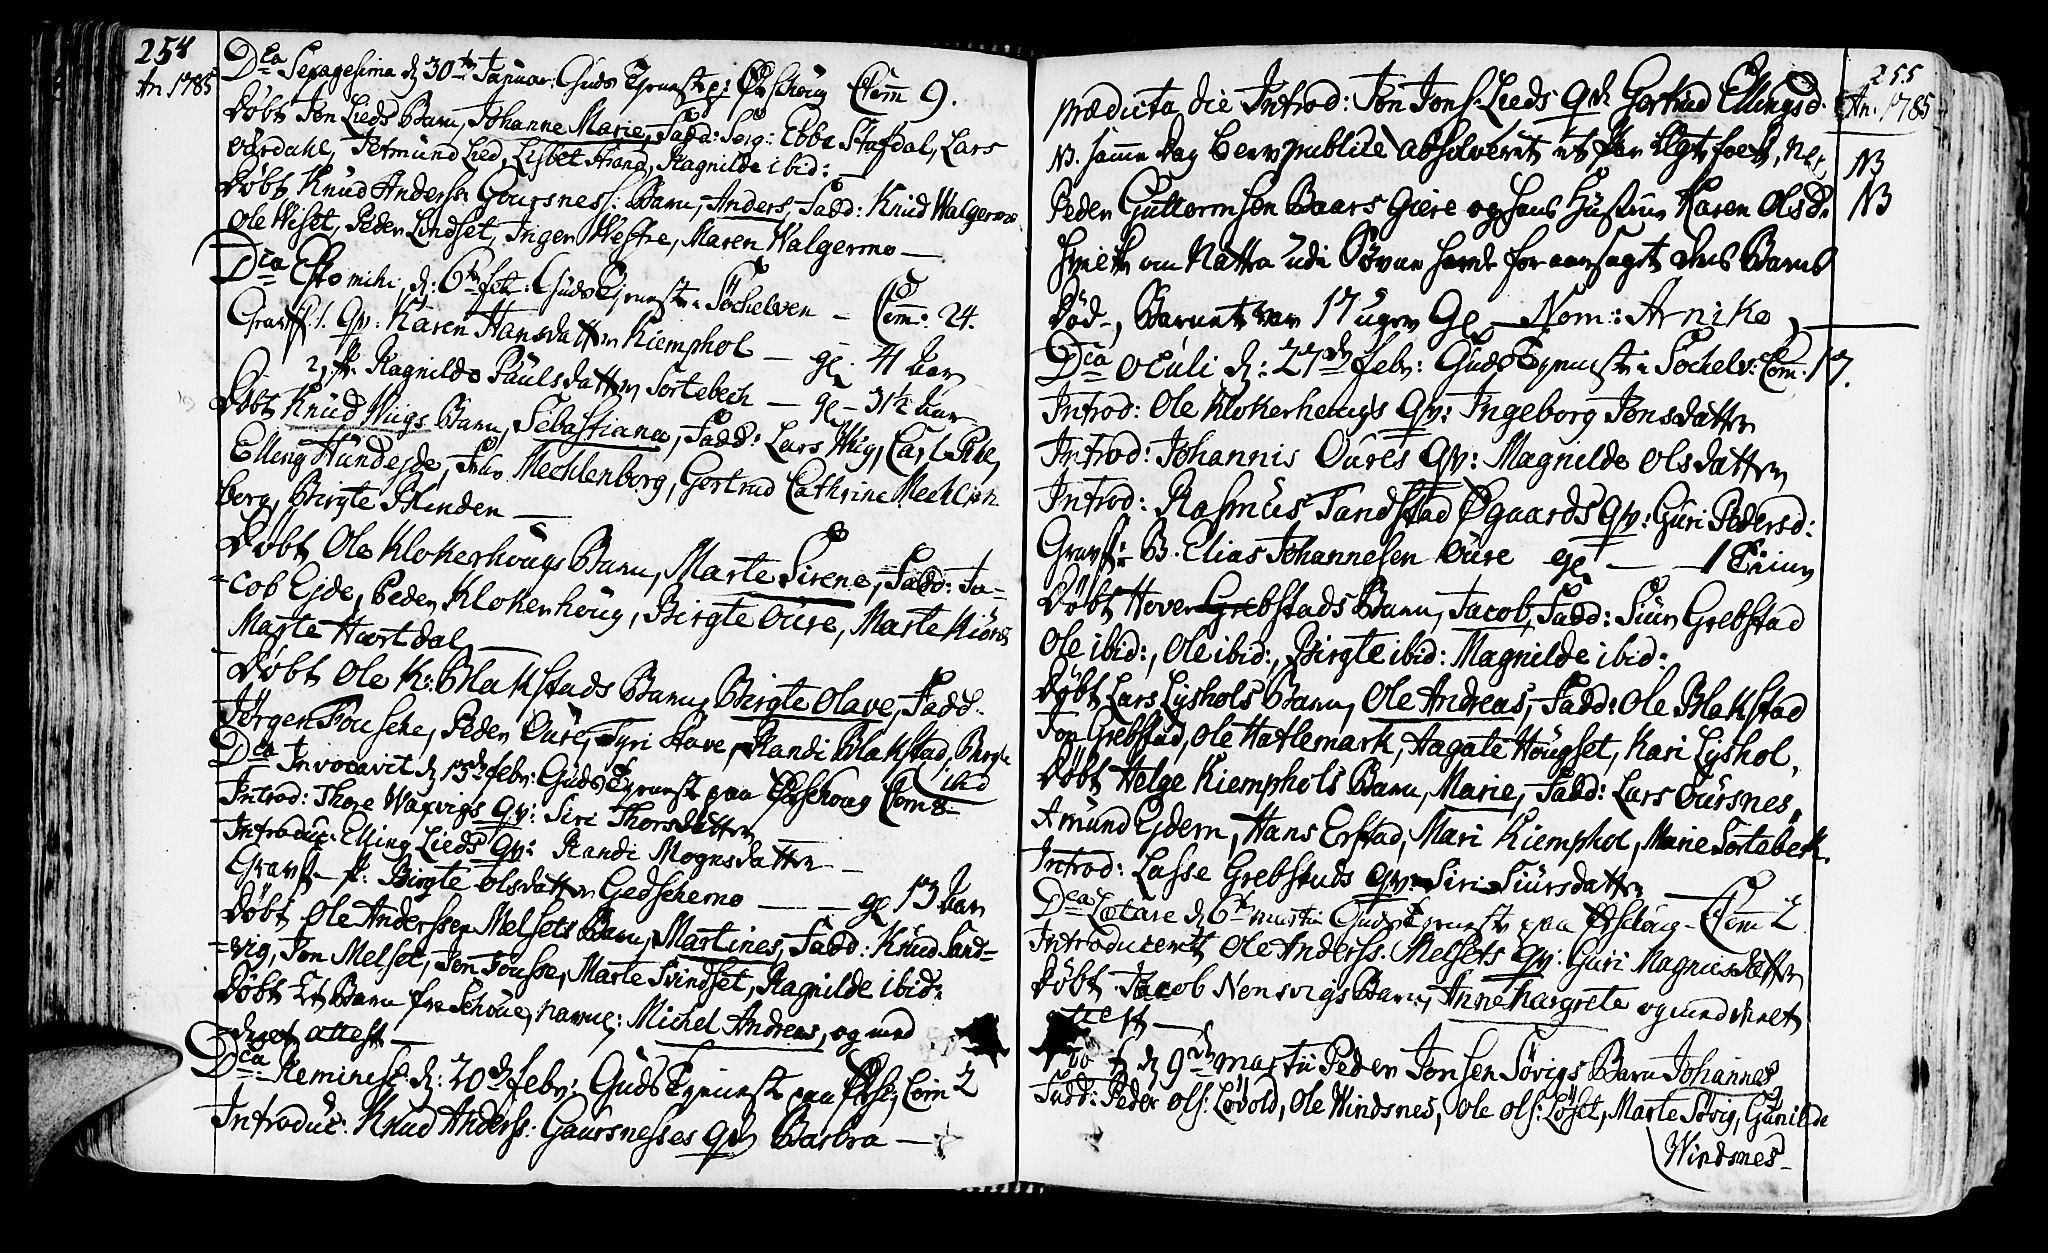 254
An 1785
Dca Sexagesima d 30te Januar: Guds Tienest p: Ørschoug Com 9.
Døbt Jon Lieds Barn, Johanne Marie, Fadd: Sorg: Ebbe Stafdal, Lars
Overdahl, Lied, Lisbet Strand, Ragnilde ibid:
Døbt Knud Anderss: Goursness: Barn, Anders, Fadd: Knud Walgermo
Ole Wiset, Peder Lindset, Inger Westre, Maren Walgermo —
Dca Esto mihi, d: 6te febr: Guds Tienest i Søchelven — Com: 24.
Gravf: 1. Qv: Karen Hansdatter Kiemphol — gl: 41 Aar
2, p. Ragnilde Paulsdatter Tortebech — gl — 31½ Aar
Døbt Knud Wiigs Barn, Sebastiana, Fadd: Lars Wiig, Carl Ribe,
Elling Hundejde, Mechlenborg, Gertrud Cathrine Mechlen
borg, Birgte Blinden —
Døbt Ole Klokerhougs Barn, Marte Sirene, Fadd: Ja=
=cob Ejde, Peder Klokerhoug, Birgte Oure, Marte Kiørs
Marte Hurtdal —
Døbt Ole K: Blakstads Barn, Birgte Olave, Fadd.
Jørgen Fouske, Peder Oure, Gyri Stave, Randi Blakstad, Birgte
ibid
Dca Invocavit d 13de febr: Guds Tienest paa Ørschoug Com 8
Introd: Thore Waxvigs Qv: Siri Thorsdatter
Introduc: Elling Lieds Qv: Randi Mognsdatter —
Gravf. p: Birgte Olsdatter Gedschemo — gl 13 Aar
Døbt Ole Anderssen Melsets Barn, Martines, Fadd: Knud Sand=
=vig, Jon Melset, Jon Fousse, Marte Svindset, Ragnilde ibid:
Døbt Et Barn fra Schoue, navnl: Michel Andreas, og med
attest —
Dca Reminesc d: 20de febr: Guds Tienest paa Ørsk: Com 2
Introduc: Knud Anderss: Gaursnesses Qv Barbra —
255
An. 1785
prædicta die Introd: Jon Jons: Lieds Qv Gertrud Ellingsd.
NB. samme Dag blev publice absolveret et par Egtefoelk, Nl:
NB
Peder Guttormsen Baars Giere og hans Hustrue Karen Olsd:
NB
om Natten udi Søvne havde foraarsaget dens Barns
Død —, Barnet var 17 uger Gl — Nom: Arnike,
Dca Oculi d: 27de febr: Guds Tienest i Søchelv: Com: 17.
Introd: Ole Klokerhougs Qv: Ingeborg Jonsdatter
Introd: Johannis Oures Qv: Magnilde Olsdatter
Introd: Rasmus Tandstad Øgaards Qv: Guri Pedersd:
Gravf: B. Elias Johannesen Oure gl — 1
Døbt Hover Grebstads Barn, Jacob, Fadd: Siur Grebstad
Ole ibid:, Ole ibid:, Birgte ibid: Magnilde ibid:
Døbt Lars Lyshols Barn, Ole Andreas, Fadd: Ole Blakstad
Jon Grebstad, Ole Hatlemark, Aagate Hougset, Kari Lyshol,
Døbt Helge Kiemphols Barn, Marie, Fadd: Lars Oursnes,
Amund Ejdem, Hans Erstad, Mari Kiemphol, Marie Tortebek.
Introd: Lasse Grebstads Qv: Siri Siursdatter —
Dca Lætare d 6te martii Guds Tienest paa Ørschoug — Com 2
Introduceret Ole Anderss. Melsets Qv: Guri Magnusdatter
Døbt Jacob Nonsvigs Barn, Anne Margrete og med
attest —
d 9de martii Peder Jonsen Søvigs Barn Johannes
Fadd: Peder Ols: Løvold, Ole Windsnes, Ole Ols: Løset, Marte Søvig, Gunilde
Windsnes —